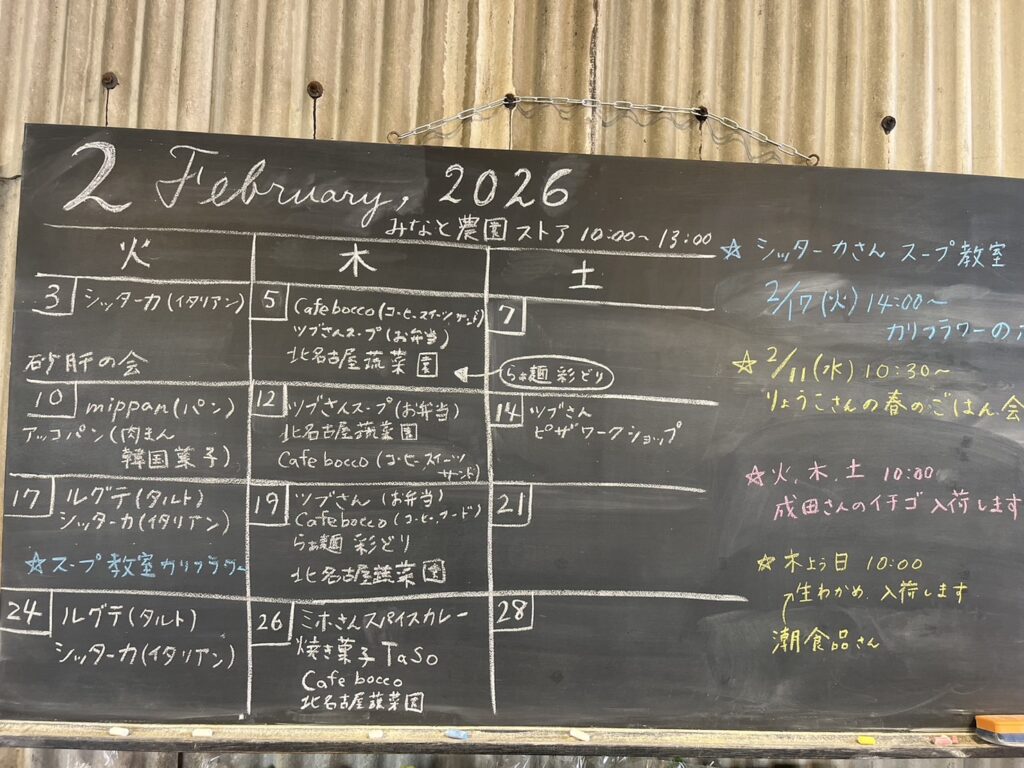 2 February, 2026
みなと農園ストア 10:00〜13:00
火
木
土
3
シッターカ(イタリアン)
砂肝の会
5
Cafe bocco(コーヒー、スイーツ、サンド)
ツブさんスープ(お弁当)
北名古屋蔬菜園
らぁ麺 彩どり
7
10
mippan(パン)
アッコパン(肉まん
韓国菓子)
12
ツブさんスープ(お弁当)
北名古屋蔬菜園
Cafe bocco(コーヒー、スイーツ
サンド)
14
ツブさん
ピザワークショップ
17
ルグテ(タルト)
シッターカ(イタリアン)
☆スープ教室カリフラワー
19
ツブさん(お弁当)
Cafe bocco(コーヒー、フード)
らぁ麺 彩どり
北名古屋蔬菜園
21
24
ルグテ(タルト)
シッターカ(イタリアン)
26
ミホさんスパイスカレー
焼き菓子 TaSo
Cafe bocco
北名古屋蔬菜園
28
☆シッターカさん スープ教室
2/17(火) 14:00〜
カリフラワーの
☆2/11(水) 10:30〜
りょうこさんの春のごはん会
☆火、木、土 10:00
成田さんのイチゴ入荷します
☆木よう日 10:00
生わかめ 入荷します
潮食品さん